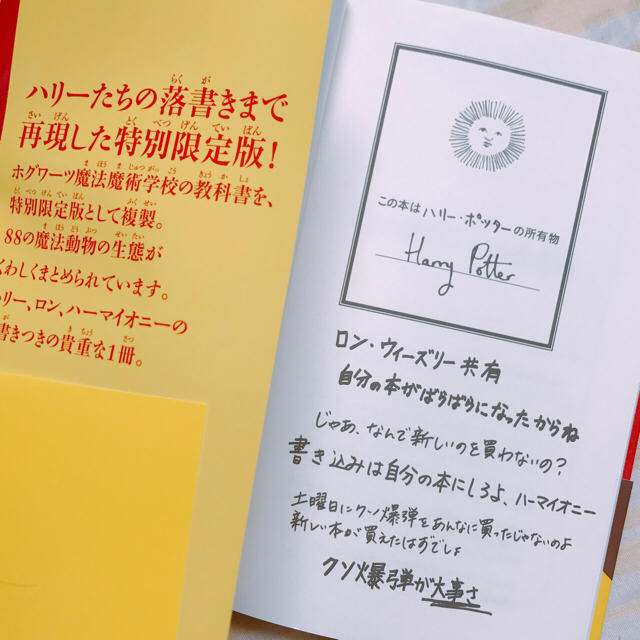 ハリーたちの落書きまで
再現した特別限定版！
ホグワーツ魔法魔術学校の教科書を、
特別限定版として複製。
88の魔法動物の生態が
くわしくまとめられています。
リー、ロン、ハーマイオニーの
書きつきの貴重な1冊。
この本はハリー・ポッターの所有物
Harry Potter
ロン・ウィーズリー共有
自分の本がばらばらになったからね
じゃあ、なんで新しいのを買わないの？
書き込みは自分の本にしろよ、ハーマイオニー
土曜日にクソ爆弾をあんなに買ったじゃないのよ
新しい本が買えたはずでしょ
クソ爆弾が大事さ